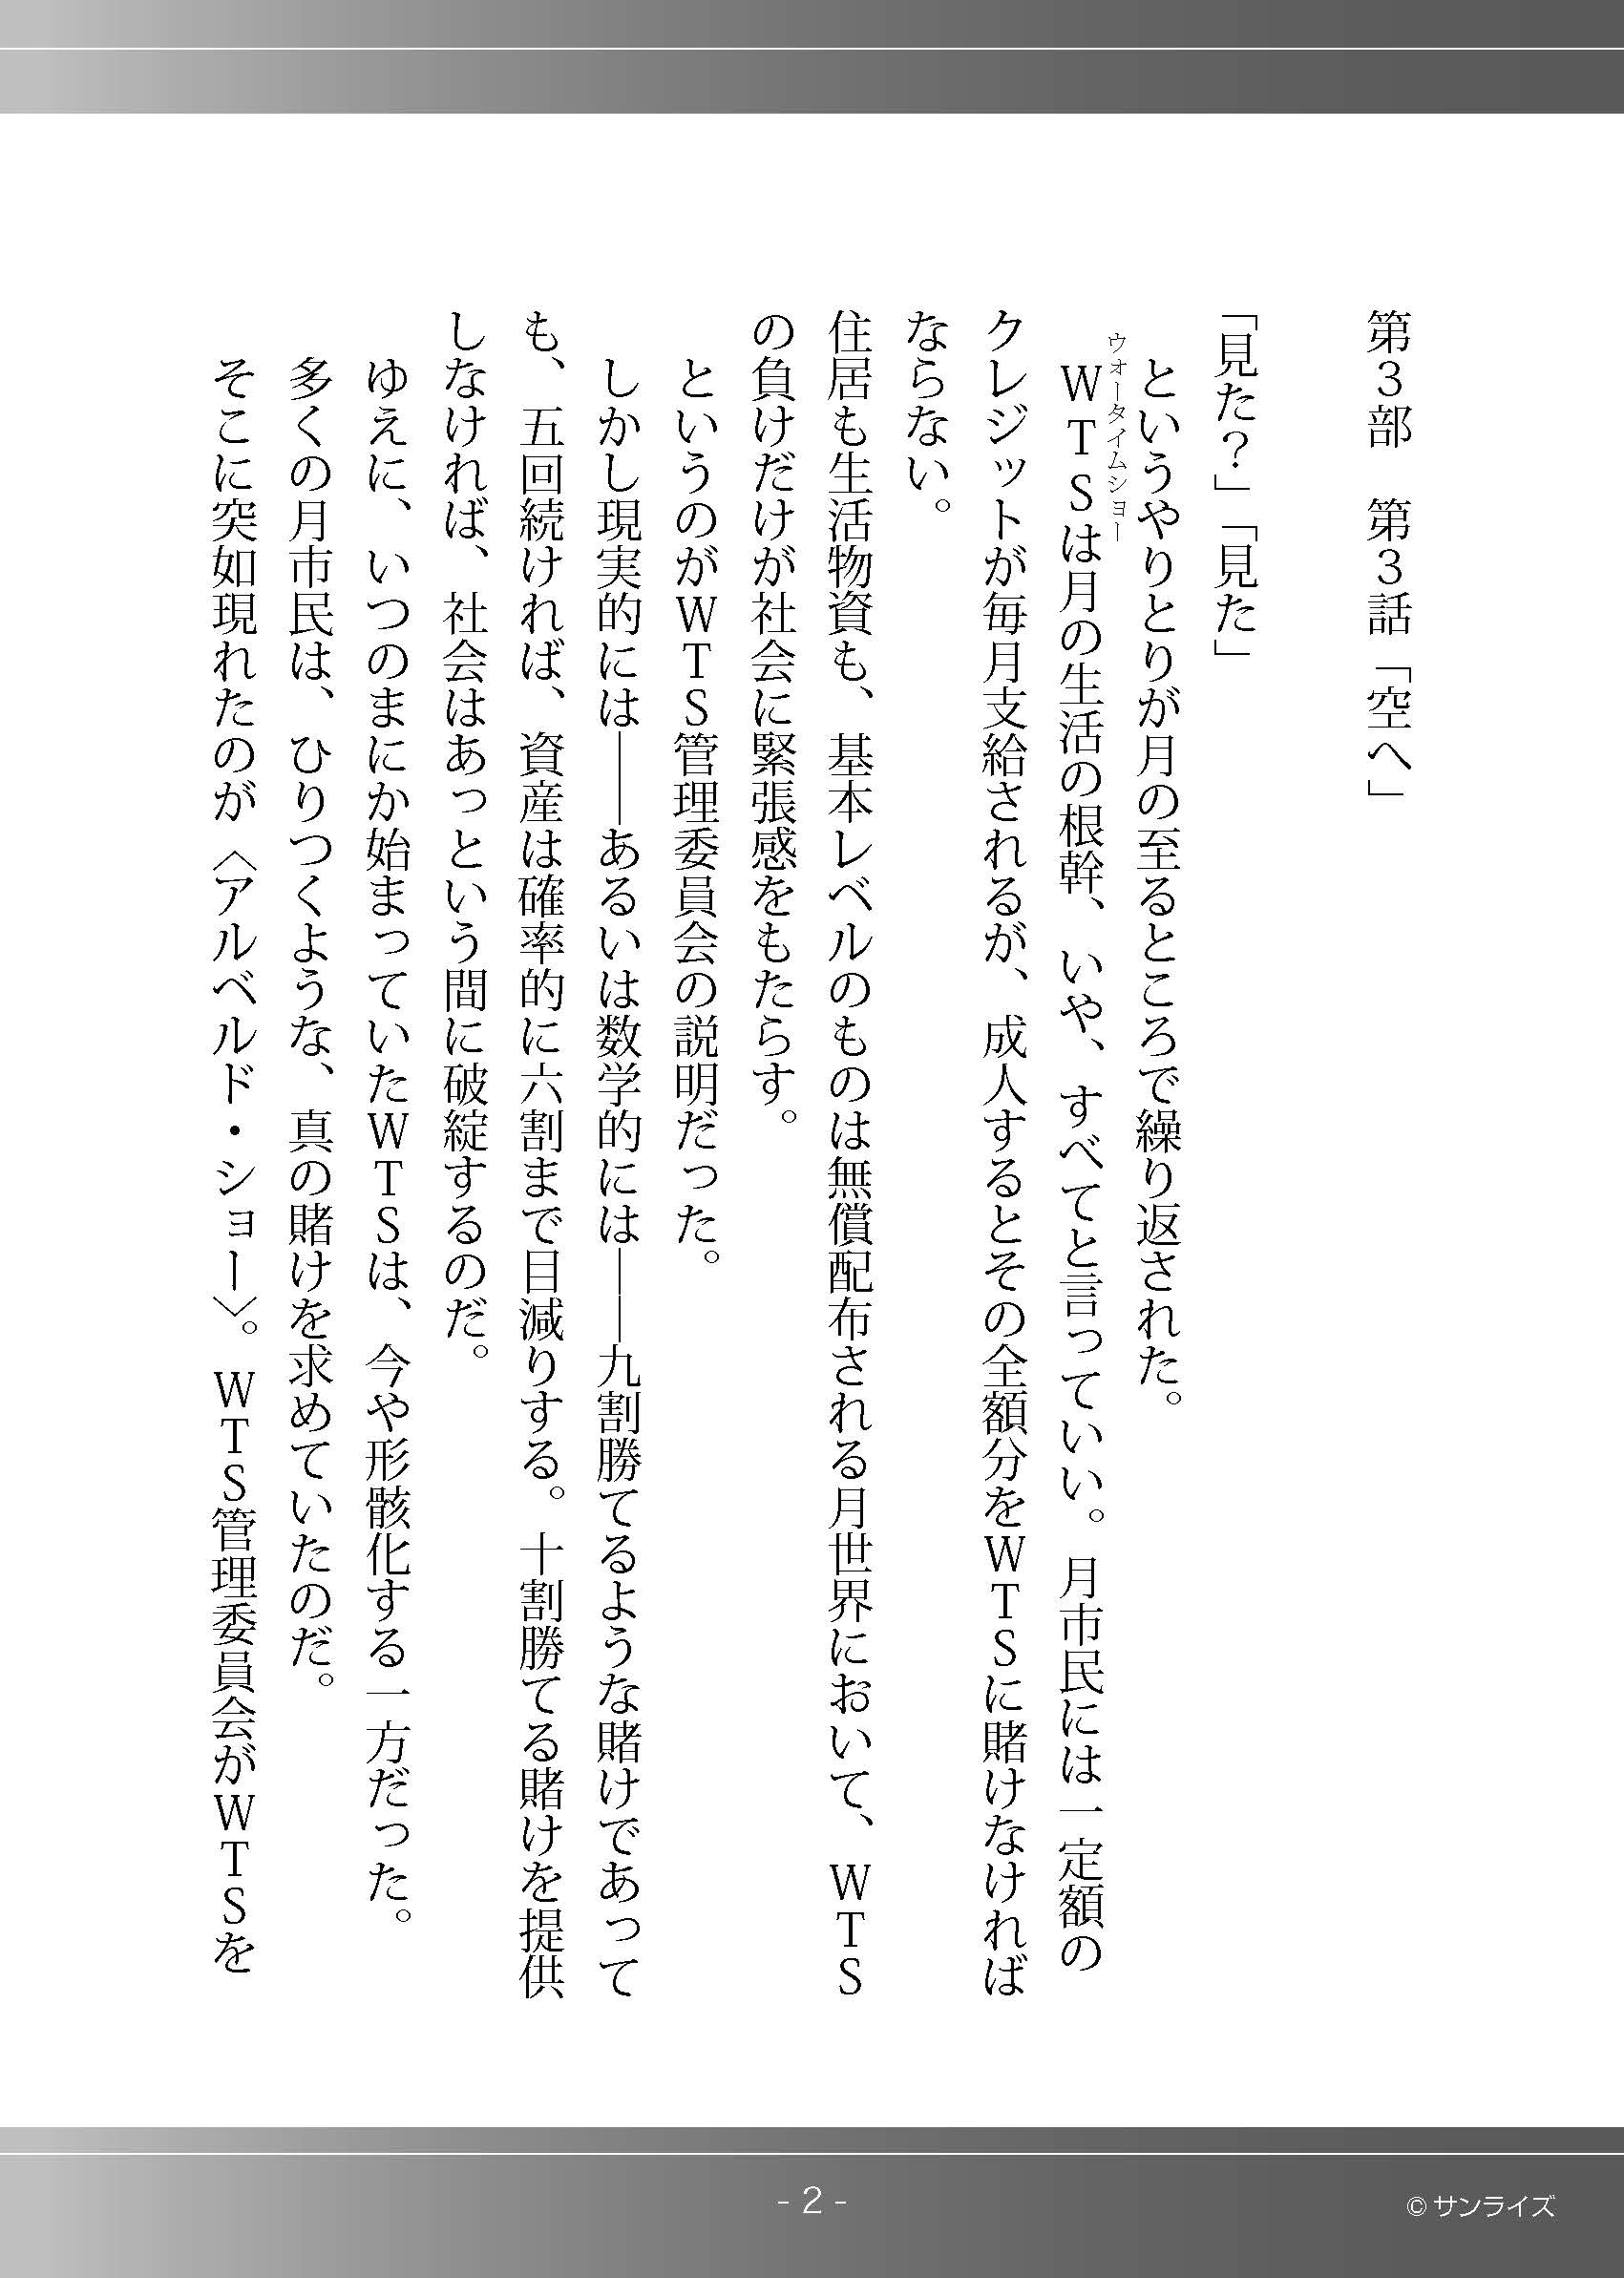 第３部　第３話「空へ」
「見た？」「見た」
　というやりとりが月の至るところで繰り返された。
ウォータイムショー
　ＷＴＳは月の生活の根幹、いや、すべてと言っていい。月市民には一定額の
クレジットが毎月支給されるが、成人するとその全額分をＷＴＳに賭けなければ
ならない。
住居も生活物資も、基本レベルのものは無償配布される月世界において、ＷＴＳ
の負けだけが社会に緊張感をもたらす。
　というのがＷＴＳ管理委員会の説明だった。
　しかし現実的には――あるいは数学的には――九割勝てるような賭けであって
も、五回続ければ、資産は確率的に六割まで目減りする。十割勝てる賭けを提供
しなければ、社会はあっという間に破綻するのだ。
　ゆえに、いつのまにか始まっていたＷＴＳは、今や形骸化する一方だった。
　多くの月市民は、ひりつくような、真の賭けを求めていたのだ。
　そこに突如現れたのが〈アルベルド・ショー〉。ＷＴＳ管理委員会がＷＴＳを
- 2 -
© サンライズ